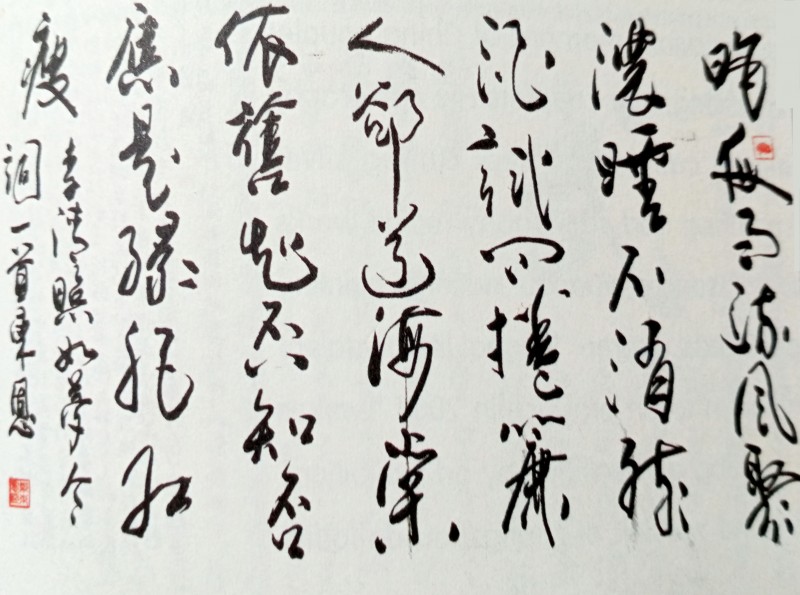 昨夜雨疏風驟
濃睡不消殘
酒試問捲簾
人卻道海棠
依舊知否知否
應是綠肥紅
瘦 李清照如夢令
詞一首東恩